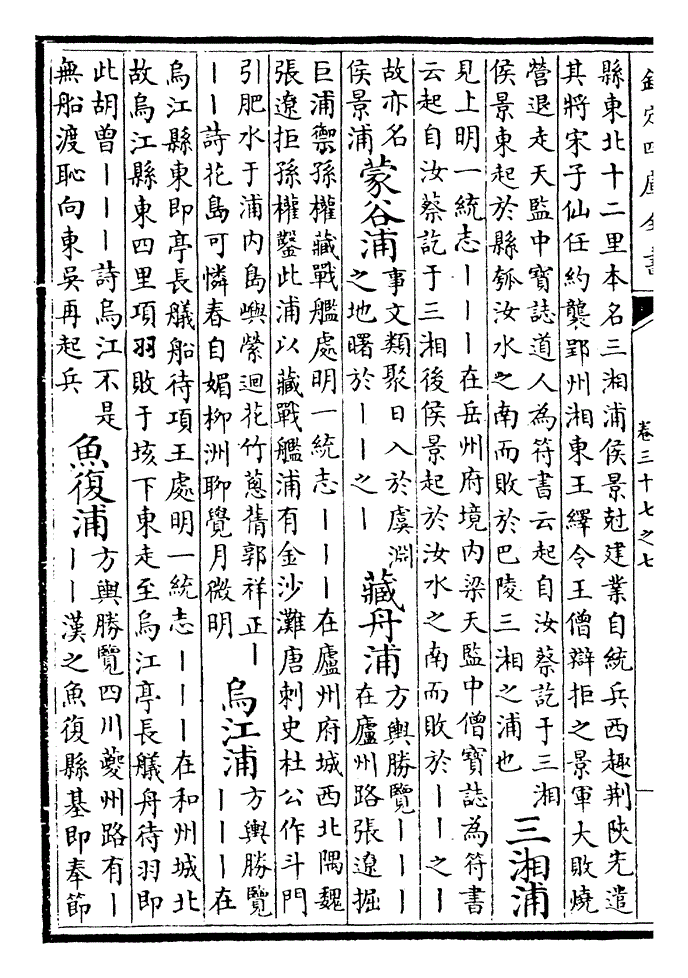 欽定四庫全書
卷三十七之七
縣東北十二里本名三湘浦侯景尅建業自統兵西趣荆陜先遣
其將宋子仙任約襲郢州湘東王繹令王僧辯拒之景軍大敗燒
營退走天監中寶誌道人為符書云起自汝蔡訖于三湘
侯景東起於縣瓠汝水之南而敗於巴陵三湘之浦也
三湘浦
見上明一統志｜｜｜在岳州府境内梁天監中僧寶誌為符書
云起自汝蔡訖于三湘後侯景起於汝水之南而敗於｜｜之｜
故亦名
侯景浦
蒙谷浦
事文類聚日入於虞淵
之地曙於｜｜之｜
藏舟浦
方輿勝覽｜｜｜
在廬州路張遼掘
巨浦禦孫權藏戰艦處明一統志｜｜｜在廬州府城西北隅魏
張遼拒孫權鑿此浦以藏戰艦浦有金沙灘唐刺史杜公作斗門
引肥水于浦内島嶼縈迴花竹蔥蒨郭祥正｜
｜｜詩花島可憐春自媚柳洲聊覺月微明
烏江浦
方輿勝覽
｜｜｜在
烏江縣東即亭長艤船待項王處明一統志｜｜｜在和州城北
故烏江縣東四里項羽敗于垓下東走至烏江亭長艤舟待羽即
此胡曾｜｜｜詩烏江不是
無船渡恥向東吳再起兵
魚復浦
方輿勝覽四川夔州路有｜
｜｜漢之魚復縣基即奉節